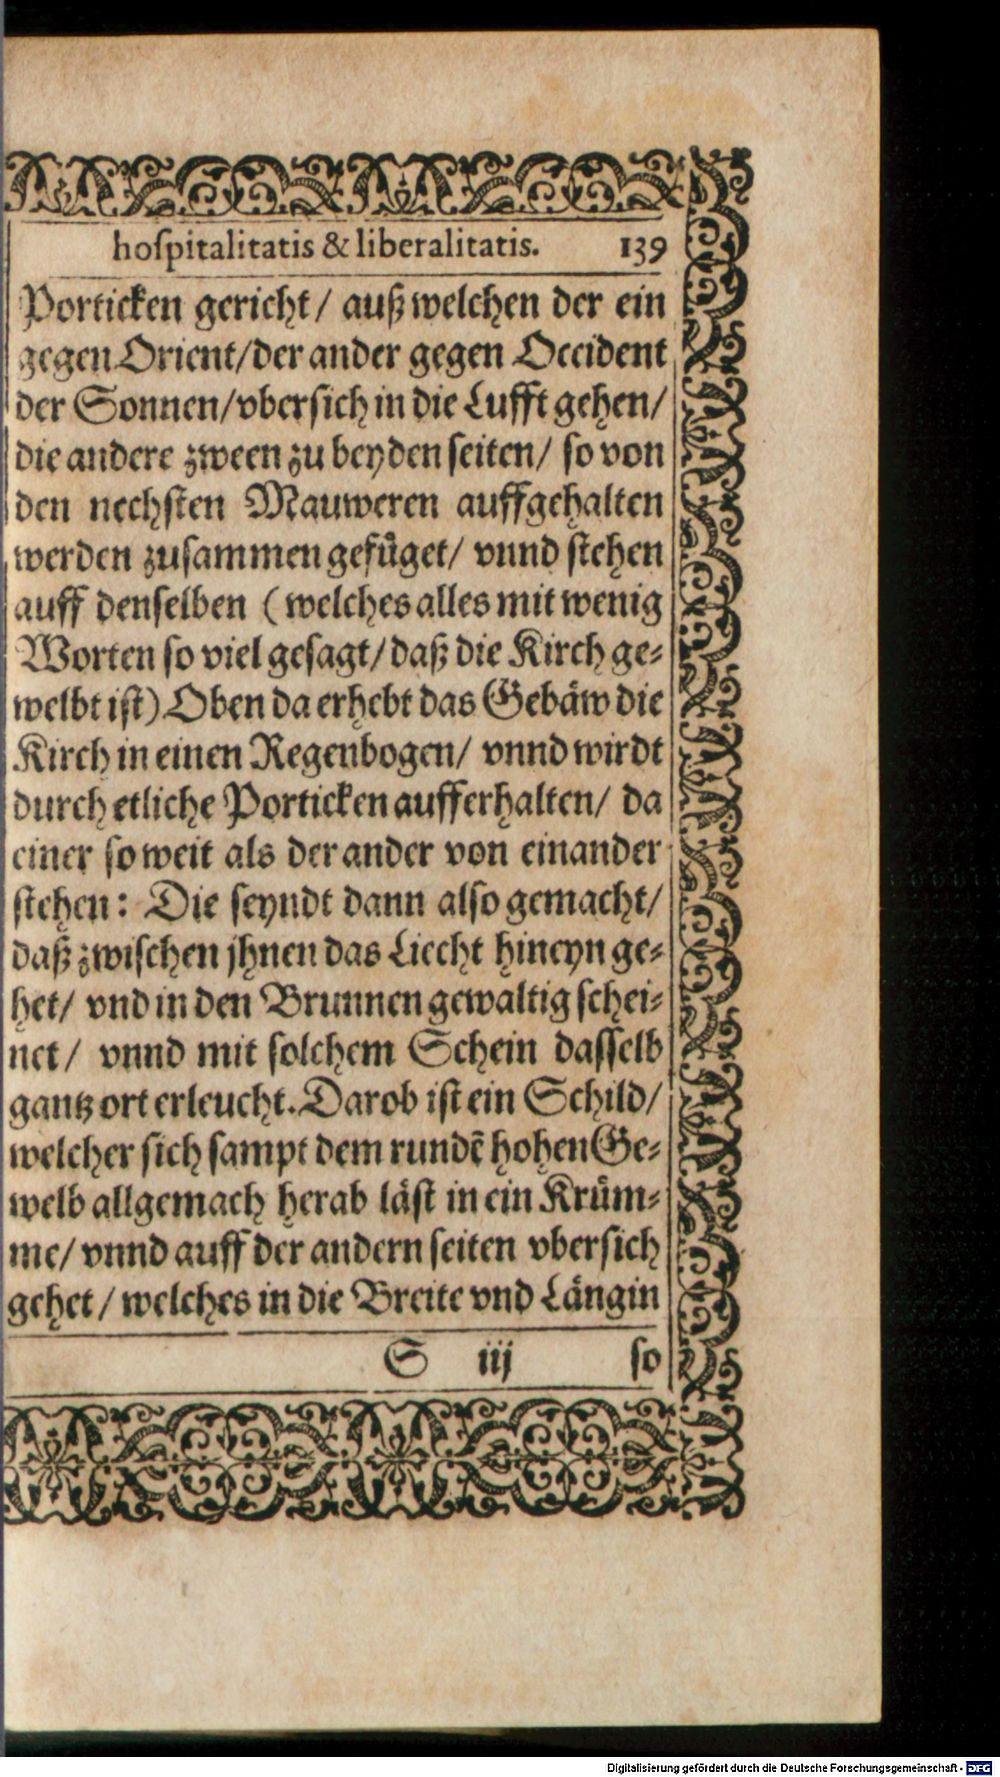 hoſpitalitatis & liberalitatis. 139
Porticken gericht/ auß welchen der ein
gegen Orient/der ander gegen Occident
der Sonnen/vberſich in die Lufft gehen/
die andere zween zu beyden ſeiten/ ſo von
den nechſten Mauweren auffgehalten
werden zuſammen gefuͤget/ vnnd ſtehen
auff denſelben ( welches alles mit wenig
Worten ſo viel geſagt/daß die Kirch ge⸗
welbt iſt) Oben da erhebt das Gebaͤw die
Kirch in einen Regenbogen/ vnnd wirdt
durch etliche Porticken aufferhalten/ da
einer ſo weit als der ander von einander
ſtehen: Die ſeyndt dann alſo gemacht/
daß zwiſchen jhnen das Liecht hineyn ge⸗
het/ vnd in den Brunnen gewaltig ſchei⸗
net/ vnnd mit ſolchem Schein daſſelb
gantz ort erleucht. Darob iſt ein Schild/
welcher ſich ſampt dem rundẽ hohen Ge⸗
welb allgemach herab laͤſt in ein Kruͤm⸗
me/ vnnd auff der andern ſeiten vberſich
gehet/ welches in die Breite vnd Laͤng in
S iij ſo
Digitalisierung gefördert durch die Deutsche Forschungsgemeinschaft - DFG